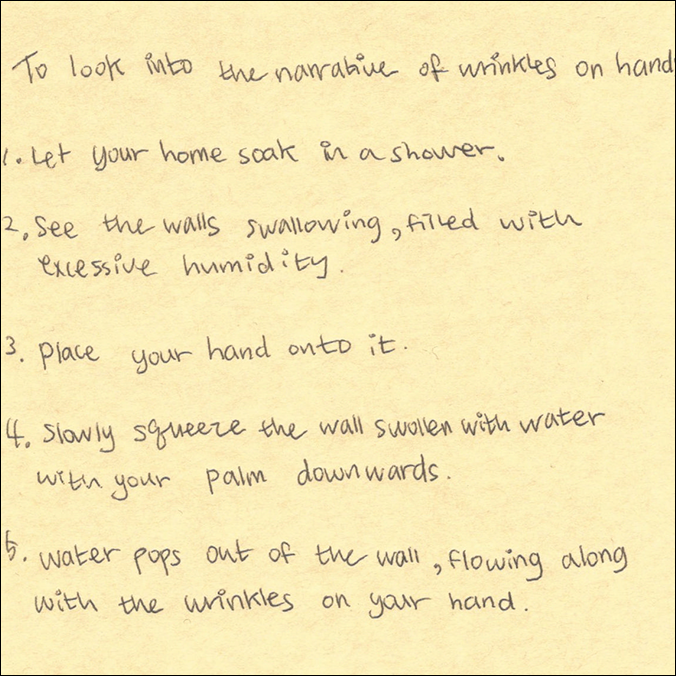 To look into the narrative of wrinkles on hand
1. Let your home soak in a shower.
2. See the walls swallowing, filled with
excessive humidity.
3. place your hand onto it.
4. Slowly squeeze the wall swollen with water
with your palm downwards.
5. water pops out of the wall, flowing along
with the wrinkles on your hand.